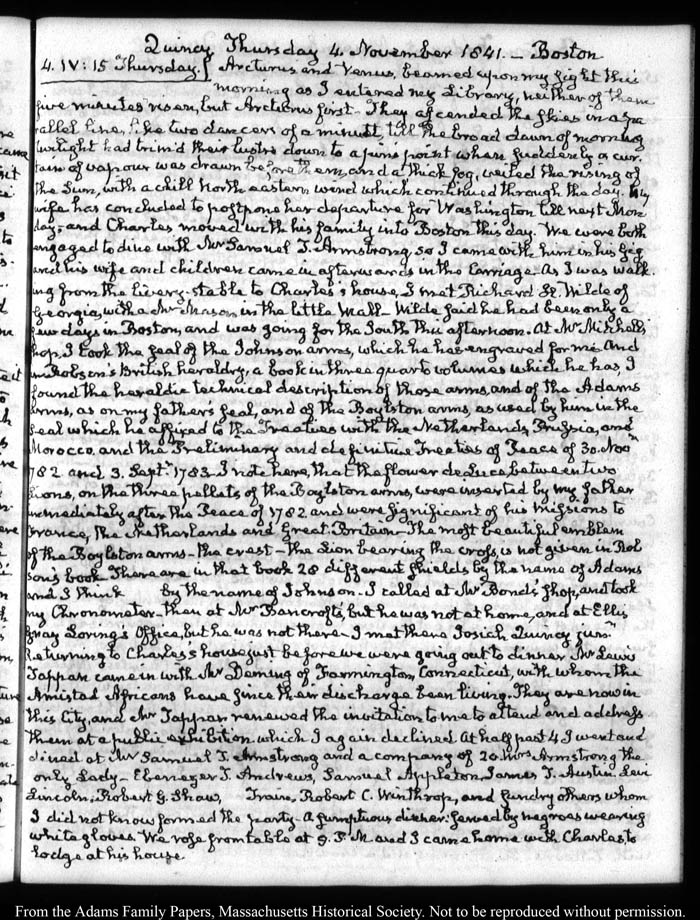 Quincy Thursday 4. November 1841. – Boston
4. IV: 15 Thursday. Arcturus and Venus, beamed upon my sight this
morning as I entered my Library, neither of them
five minutes risen, but Arcturus first – They ascended the skies in a pa
rallel line, like two dancers of a minuet, till the broad dawn of morning
twilight had trim'd their lustre down to a pin's point when suddenly a cur
tain of vapour was drawn before them, and a thick fog, veiled the rising of
the Sun, with a chill North eastern wind which continued through the day. My
wife has concluded to postpone her departure for Washington till next Mon
day, and Charles moved with his family into Boston this day. We were both
engaged to dine with Mr Samuel T. Armstrong, so I came with him in his gig
and his wife and children came in afterwards in the Carriage. As I was walk
ing from the livery-stable to Charles's house, I met Richard H. Wilde of
Georgia, with a Mr Mason, in the little Mall – Wilde said he had been only a
few days in Boston, and was going for the South this afternoon. At Mr Mitchell's
shop, I took the seal of the Johnson arms, which he has engraved for me and
in Robson's British heraldry, a book in three quarto volumes which he has, I
found the heraldic technical description of those arms, and of the Adams
arms, as on my father's seal, and of the Boylston arms, as used by him in the
seal which he affixed to the Treaties with the Netherlands, Prussia, and
Morocco, and the Preliminary and definitive Treaties of Peace of 30. Novr
1782 and 3. Septr 1783. I note here, that the flower de Luce between two
Lions, on the three pallets of the Boylston arms, were inserted by my father
immediately after the Peace of 1782 and were significant of his missions to
France, the Netherlands and Great-Britain – The most beautiful emblem
of the Boylston arms – the crest – the Lion bearing the cross, is not given in Rob
son's book. There are in that book 28 different shields by the name of Adams
and I think by the name of Johnson – I called at Mr Bond's shop, and took
my Chronometer – then at Mr Bancroft's, but he was not at home, and at Ellis
Gray Loring's Office, but he was not there – I met there Josiah Quincy junr
Returning to Charles's house just before we were going out to dinner Mr Lewis
Tappan came in with Mr Deming of Farmington, Connecticut, with whom the
Amistad Africans have since their discharge been living. They are now in
this City, and Mr Tappan renewed the invitation to me to attend and address
them at a public exhibition which I again declined. At half past 4 I went and
dined at Mr Samuel T. Armstrong and a company of 20. Mrs Armstrong the
only Lady – Ebenezer T. Andrews, Samuel Appleton, James T. Austin, Levi
Lincoln, Robert G. Shaw, Train, Robert C. Winthrop, and sundry others whom
I did not know formed the party – A sumptuous dinner: served by negroes wearing
white gloves. We rose from table at 9. P.M. and I came home with Charles, to
lodge at his house
From the Adams Family Papers, Massachusetts Historical Society. Not to be reproduced without permission.